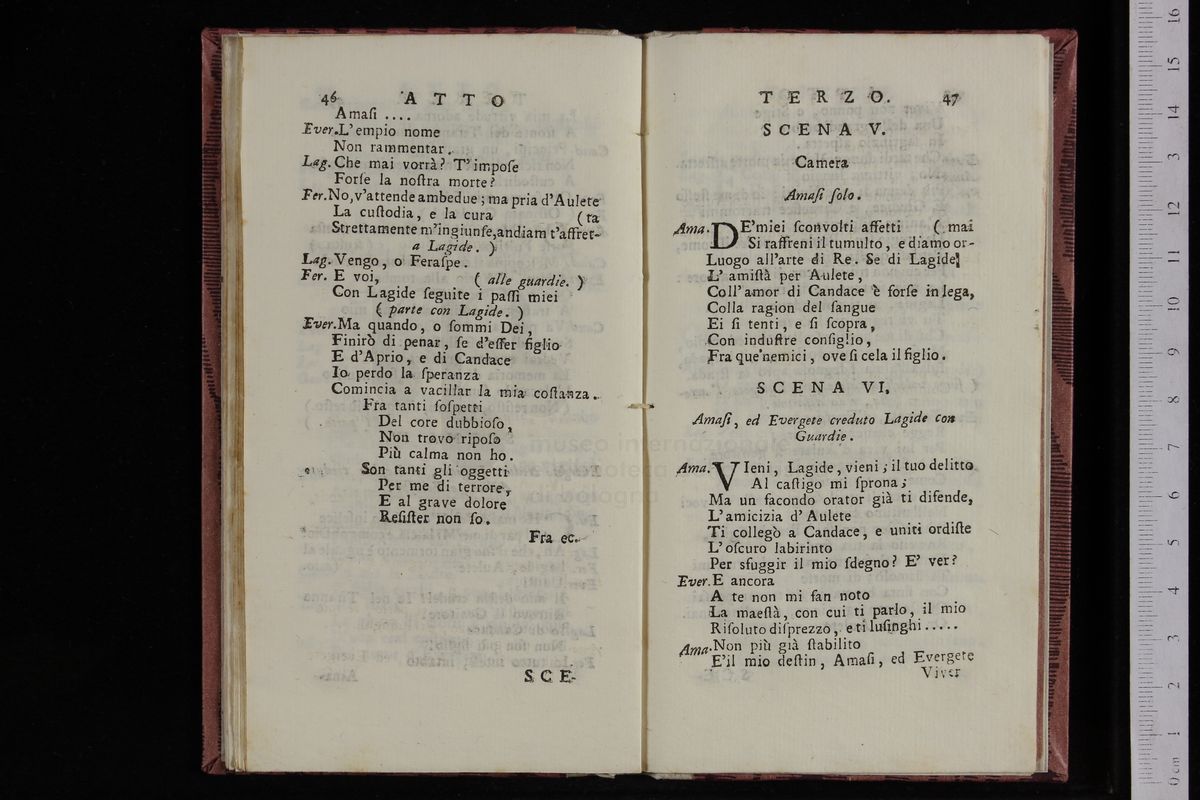 46 ATTO
Amaſi ....
Ever.L'empio nome
Non rammentar.
Lag.Che mai vorrà? T'impoſe
Forſe la noſtra morte?
Fer.No,v'attende ambedue; ma pria d'Aulete
La cuſtodia, e la cura (ta
Strettamente m'ingiunſe,andiam t'affret-
a Lagide. )
Lag.Vengo, o Feraſpe.
Fer. E voi, ( alle guardie. )
Con Lagide ſeguite i paſſi miei
( parte con Lagide. )
Ever.Ma quando, o ſommi Dei,
Finirò di penar, ſe d'eſſer figlio
E d'Aprio, e di Candace
Io perdo la ſperanza
Comincia a vacillar la mia coſtanza.
Fra tanti ſoſpetti
Del core dubbioſo,
Non trovo ripoſo
Più calma non ho.
Son tanti gli oggetti
Per me di terrore,
E al grave dolore
Reſiſter non ſo.
Fra ec.
SCE-
TERZO. 47
SCENA V.
Camera
Amaſi ſolo.
Ama.DE'miei ſconvolti affetti ( mai
Si raffreni il tumulto, e diamo or-
Luogo all'arte di Re. Se di Lagide
L'amiſtà per Aulete,
Coll'amor di Candace è forſe in lega,
Colla ragion del ſangue
Ei ſi tenti, e ſi ſcopra,
Con induſtre conſiglio,
Fra que'nemici, ove ſi cela il figlio.
SCENA VI.
Amaſi, ed Evergete creduto Lagide con
Guardie.
Ama.VIeni, Lagide, vieni; il tuo delitto
Al caſtigo mi ſprona;
Ma un facondo orator già ti difende,
L'amicizia d'Aulete
Ti collegò a Candace, e uniti ordiſte
L'oſcuro labirinto
Per sfuggir il mio ſdegno? E' ver?
Ever.E ancora
A te non mi fan noto
La maeſtà, con cui ti parlo, il mio
Riſoluto diſprezzo, e ti luſinghi.....
Ama.Non più già ſtabilito
E'il mio deſtin, Amaſi, ed Evergete
Viver
museo internazionale
di bologna
0 cm 1 2 3 4 5 6 7 8 9 10 11 12 13 14 15 16